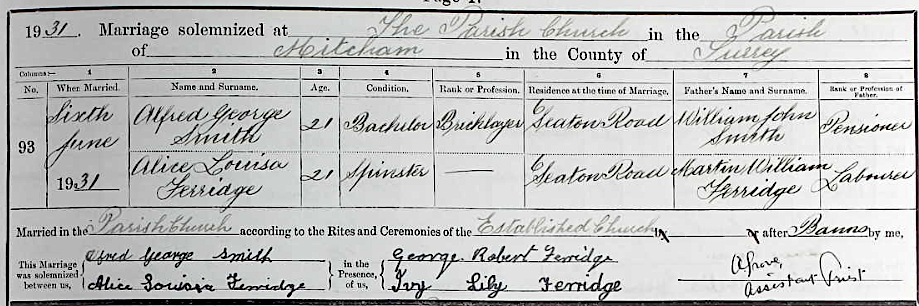 Page 1.
1931. Marriage solemnized at The Parish Church in the Parish
of Mitcham in the County of Surrey
Columns:— 1 2 3 4 5 6 7 8
No. When Married. Name and Surname. Age. Condition. Rank or Profession. Residence at the time of Marriage. Father's Name and Surname. Rank or Profession of Father.
93 Sixth June 1931 Alfred George Smith 21 Bachelor Bricklayer Seaton Road William John Smith Pensioner
Alice Louisa Ferridge 21 Spinster — Seaton Road Martin William Ferridge Labourer
Married in the Parish Church according to the Rites and Ceremonies of the Established Church or after Banns by me,
This Marriage was solemnized between us, Alfred George Smith in the Presence of us, George Robert Ferridge
Alice Louisa Ferridge Ivy Lily Ferridge Assistant Priest